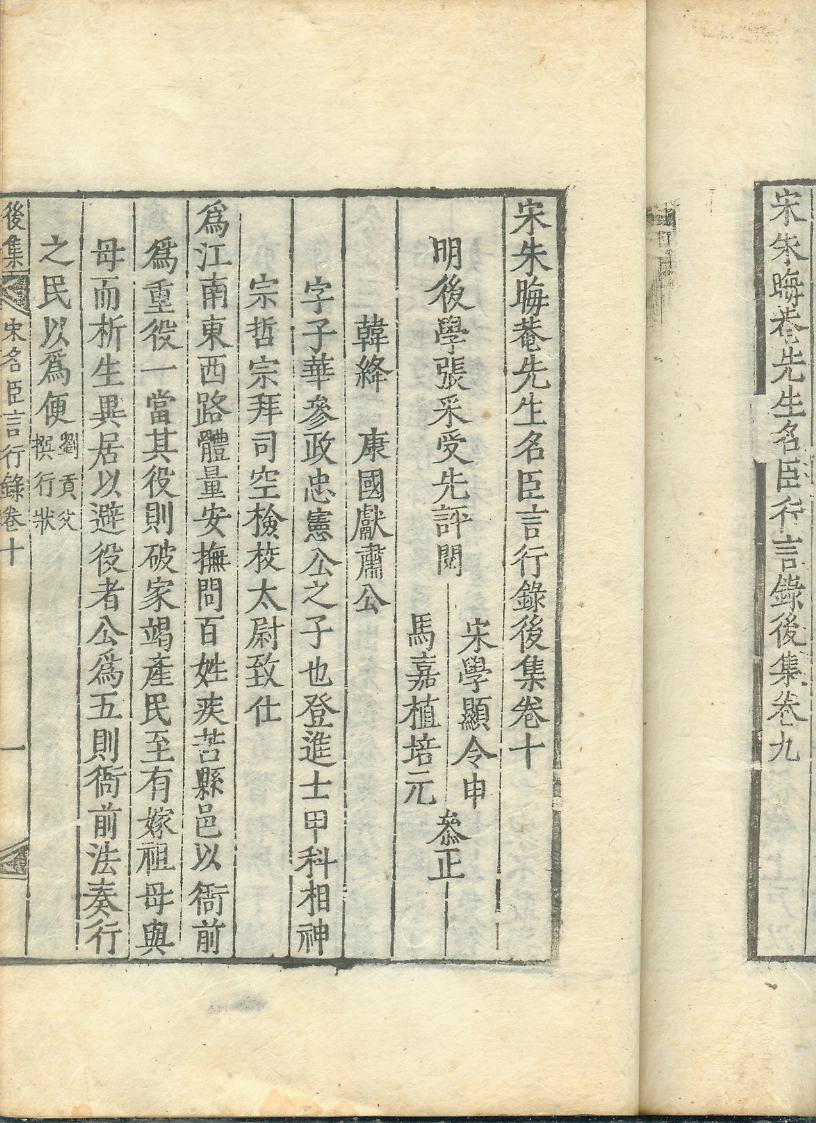 宋朱晦菴先生名臣行言錄後集卷九
宋朱晦菴先生名臣言行錄後集卷十
明後學張采受先評閱
宋學顯令申
馬嘉植培元
叅正
韓絳 康國獻肅公
字子華參政忠憲公之子也登進士甲科相神
宗哲宗拜司空檢校太尉致仕
爲江南東西路體量安撫問百姓疾苦縣邑以衙前
爲重役一當其役則破家竭產民至有嫁祖母與
母而析生異居以避役者公爲五則衙前法奏行
之民以爲便劉貢父
撰行狀
後集 宋名臣言行錄卷十 一